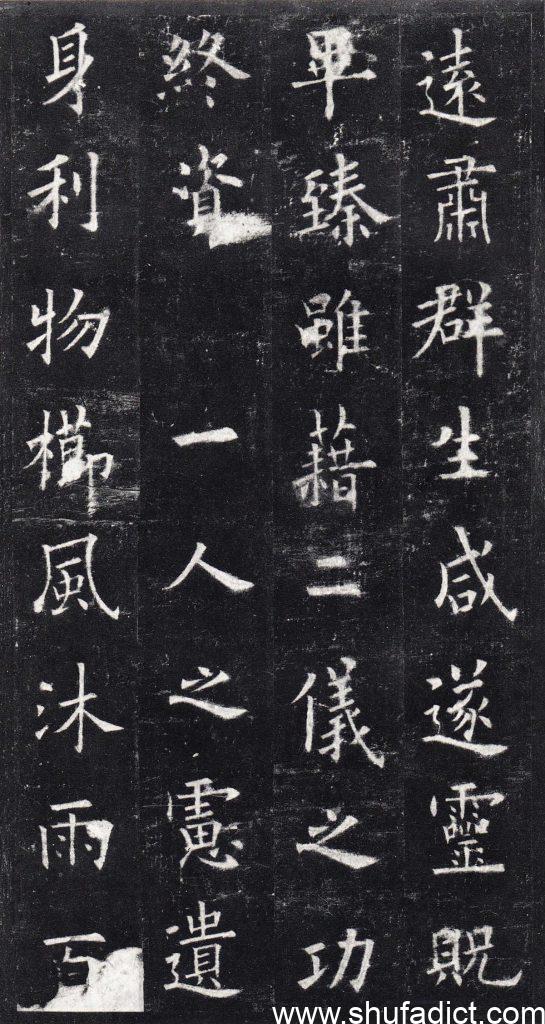 遠肅群生咸遂靈貺
畢臻雖藉二儀之功
終資一人之慮遺
身利物櫛風沐雨百
www.shufadict.com